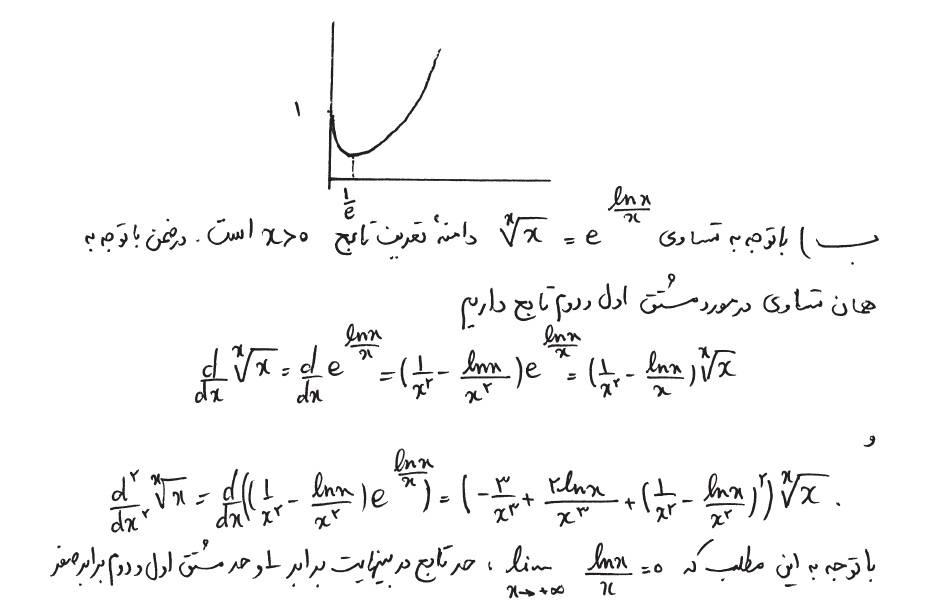 ۱
1/e
ب) باتوجه به تساوی ˣ√x = e^(lnx/x) دامنهٔ تعریف تابع x>0 است. درضمن باتوجه به
همان تساوی درمورد مشتق اول و دوم تابع داریم
d/dx ˣ√x = d/dx e^(lnx/x) = (1/x^۲ - lnx/x^۲)e^(lnx/x) = (1/x^۲ - lnx/x)ˣ√x
و
d^۲/dx^۲ ˣ√x = d/dx((1/x^۲ - lnx/x^۲)e^(lnx/x)) = (-۳/x^۳ + ۲lnx/x^۳ + (1/x^۲ - lnx/x^۲)^۲)ˣ√x.
با توجه به این مطلب که lim x→+∞ lnx/x =0، حد تابع در بینهایت برابر 1 و حد مشتق اول و دوم برابر صفر